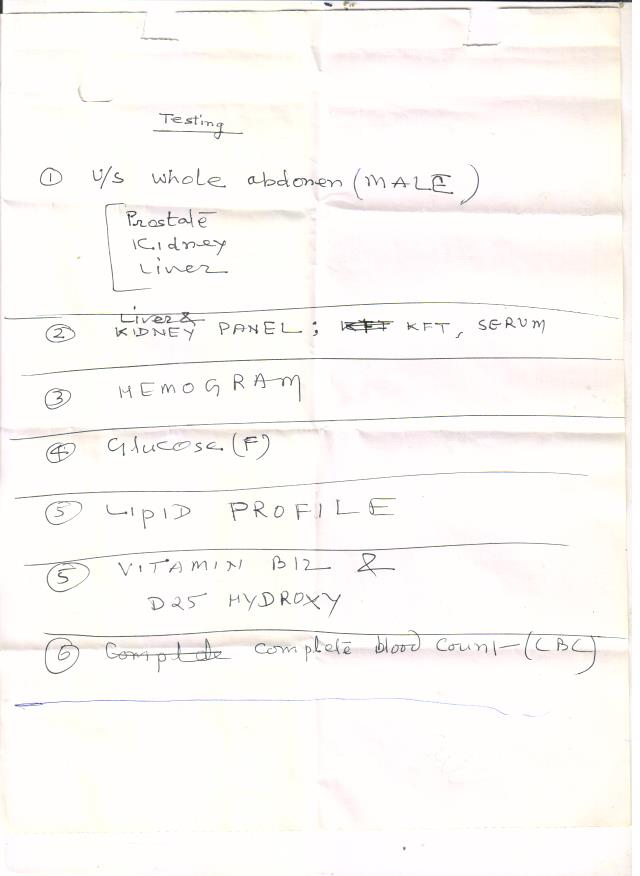 Testing
① U/S whole abdomen (MALE)
Prostate
Kidney
Liver
Liver &
② KIDNEY PANEL; KFT KFT, SERUM
③ HEMOGRAM
④ Glucose (F)
⑤ LIPID PROFILE
⑤ VITAMIN B12 &
D25 HYDROXY
⑥ Complete complete blood count (CBC)